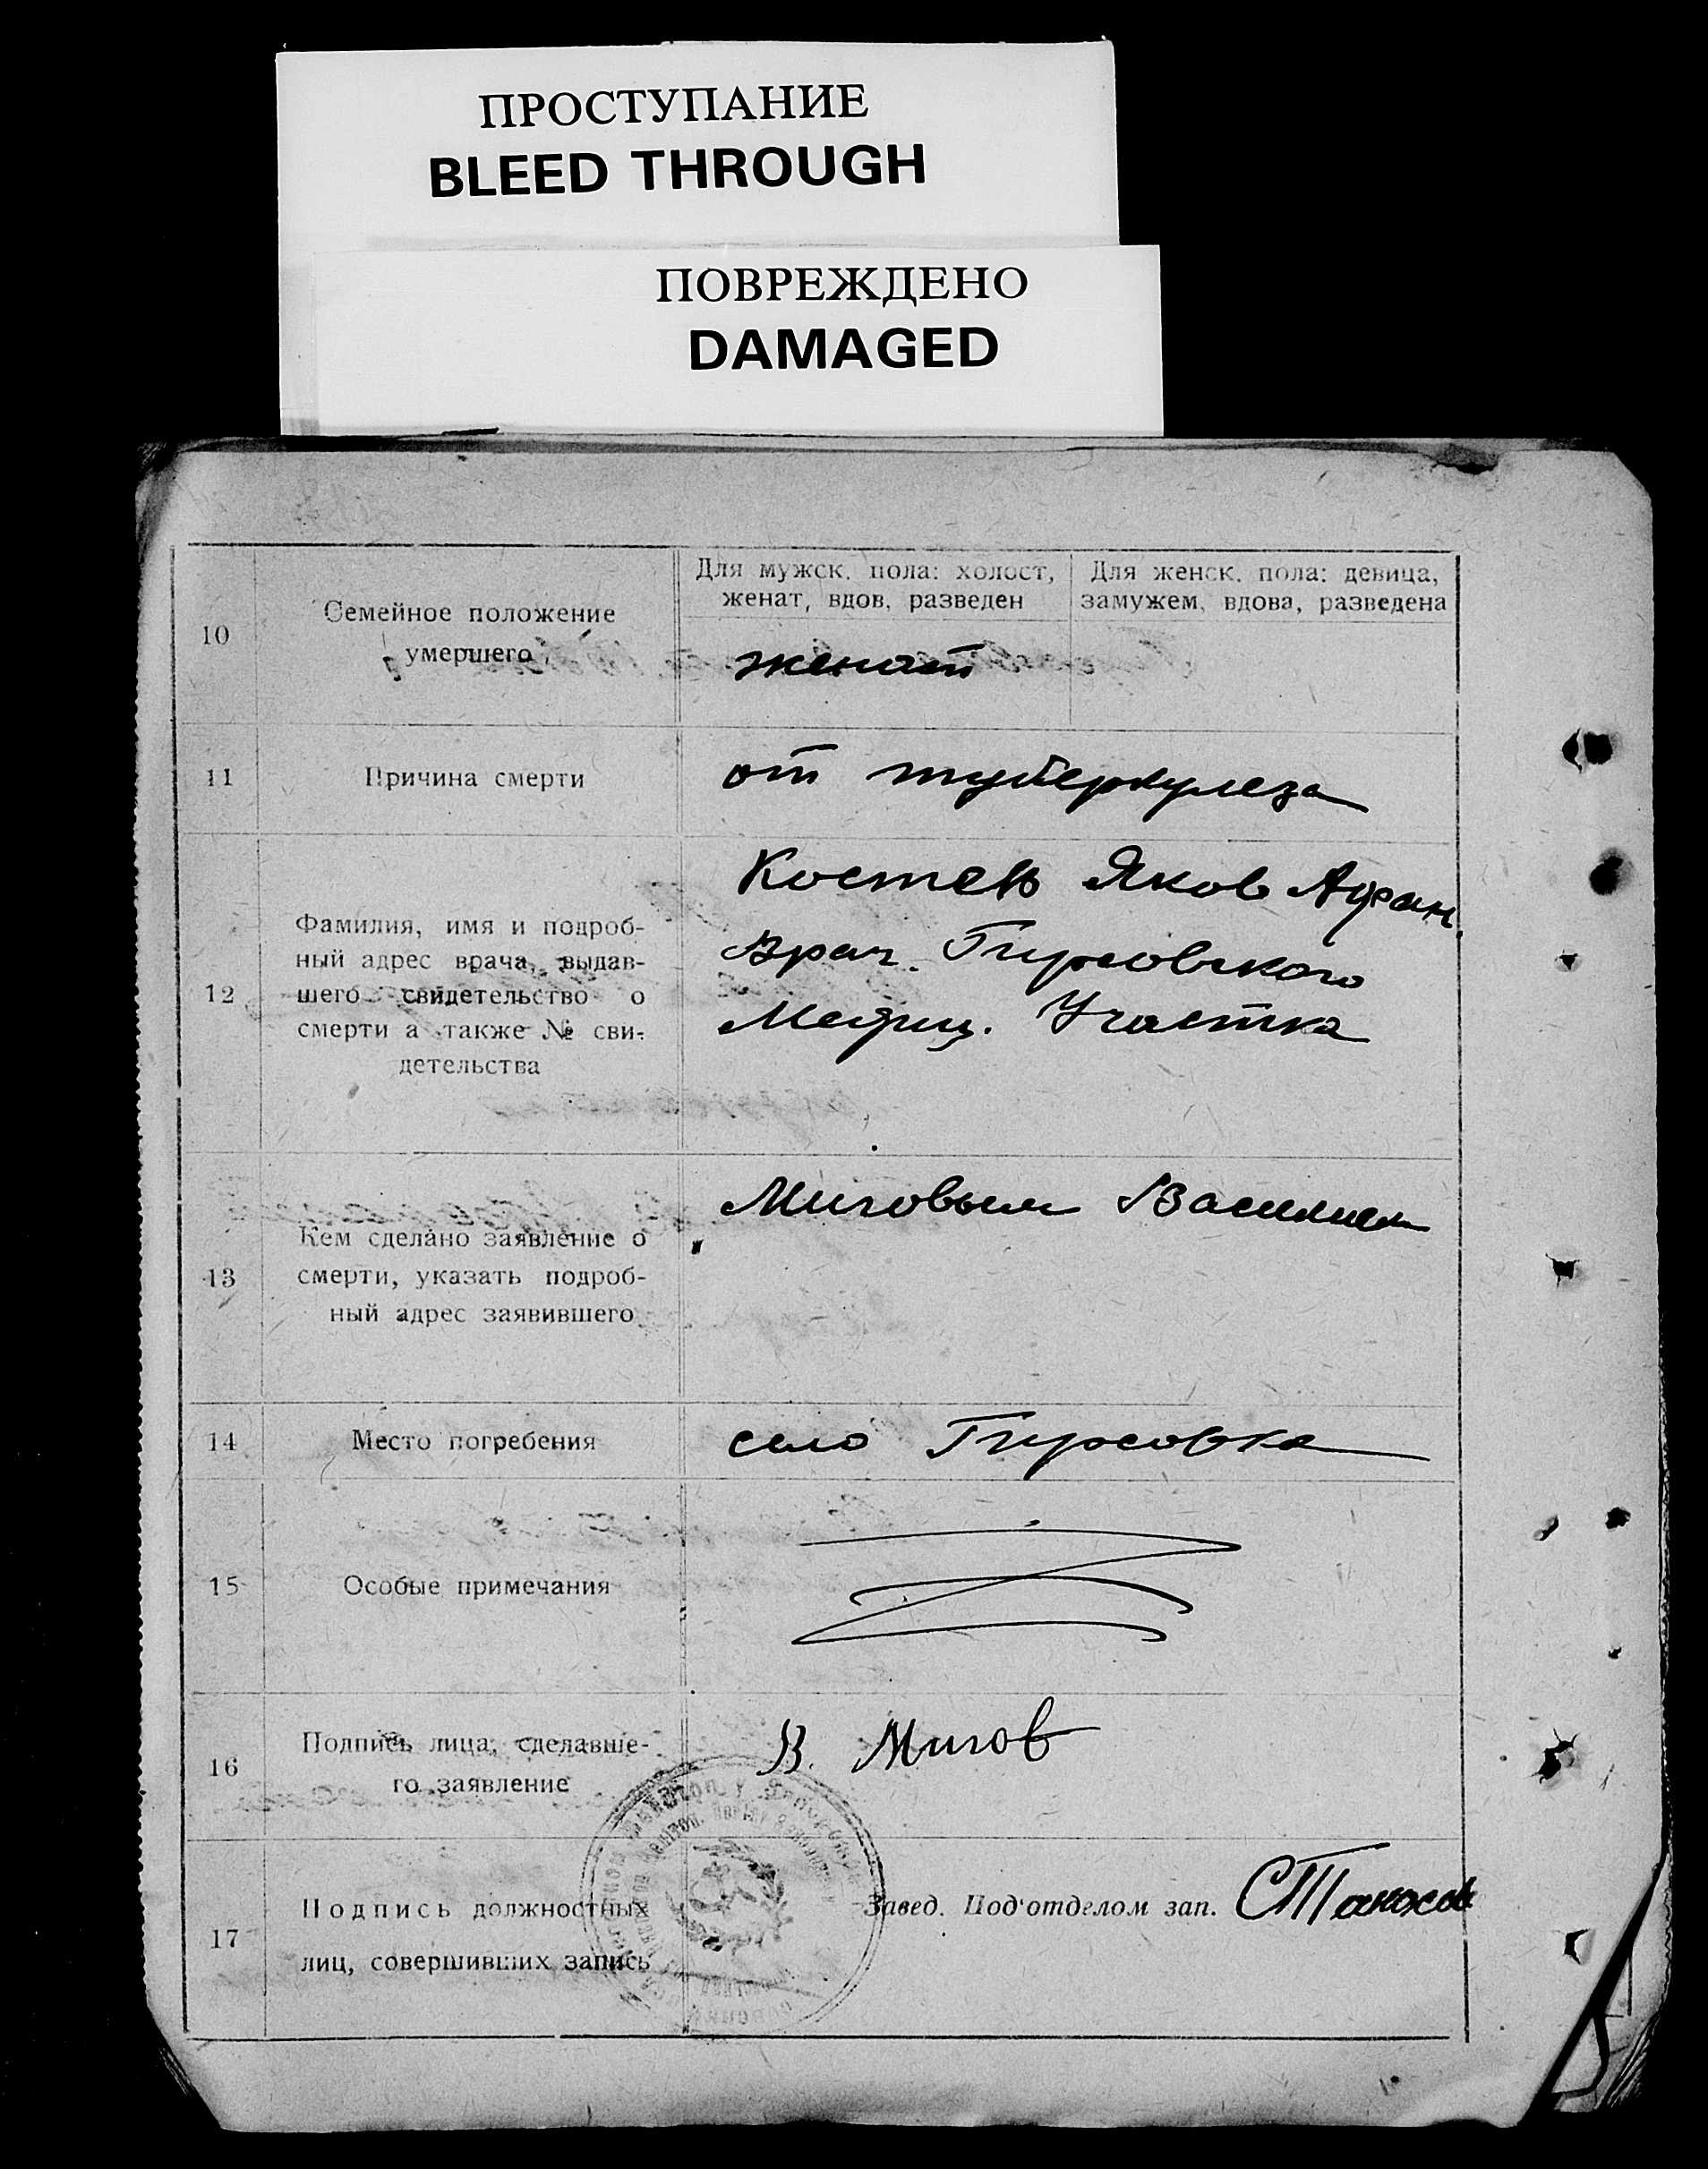 ПРОСТУПАНИЕ
BLEED THROUGH
ПОВРЕЖДЕНО
DAMAGED
10
Семейное положение
умершего
Для мужск. пола: холост,
женат, вдов, разведен
Для женск. пола: девица,
замужем, вдова, разведена
женат
11
Причина смерти
от туберкулеза
12
Фамилия, имя и подроб-
ный адрес врача, выдав-
шего свидетельство о
смерти а также № сви-
детельства
Костен Яков
Врач. Гирсовского
Медиц. Участка
13
Кем сделано заявление о
смерти, указать подроб-
ный адрес заявившего
Миговым Василием
14
Место погребения
село Гирсовка
15
Особые примечания
16
Подпись лица, сделавше-
го заявление
В. Мигов
17
Подпись должностных
лиц, совершивших запись
Завед. Под'отделом зап.